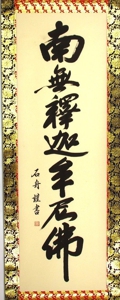 南無釋迦牟尼佛
石舟謹書